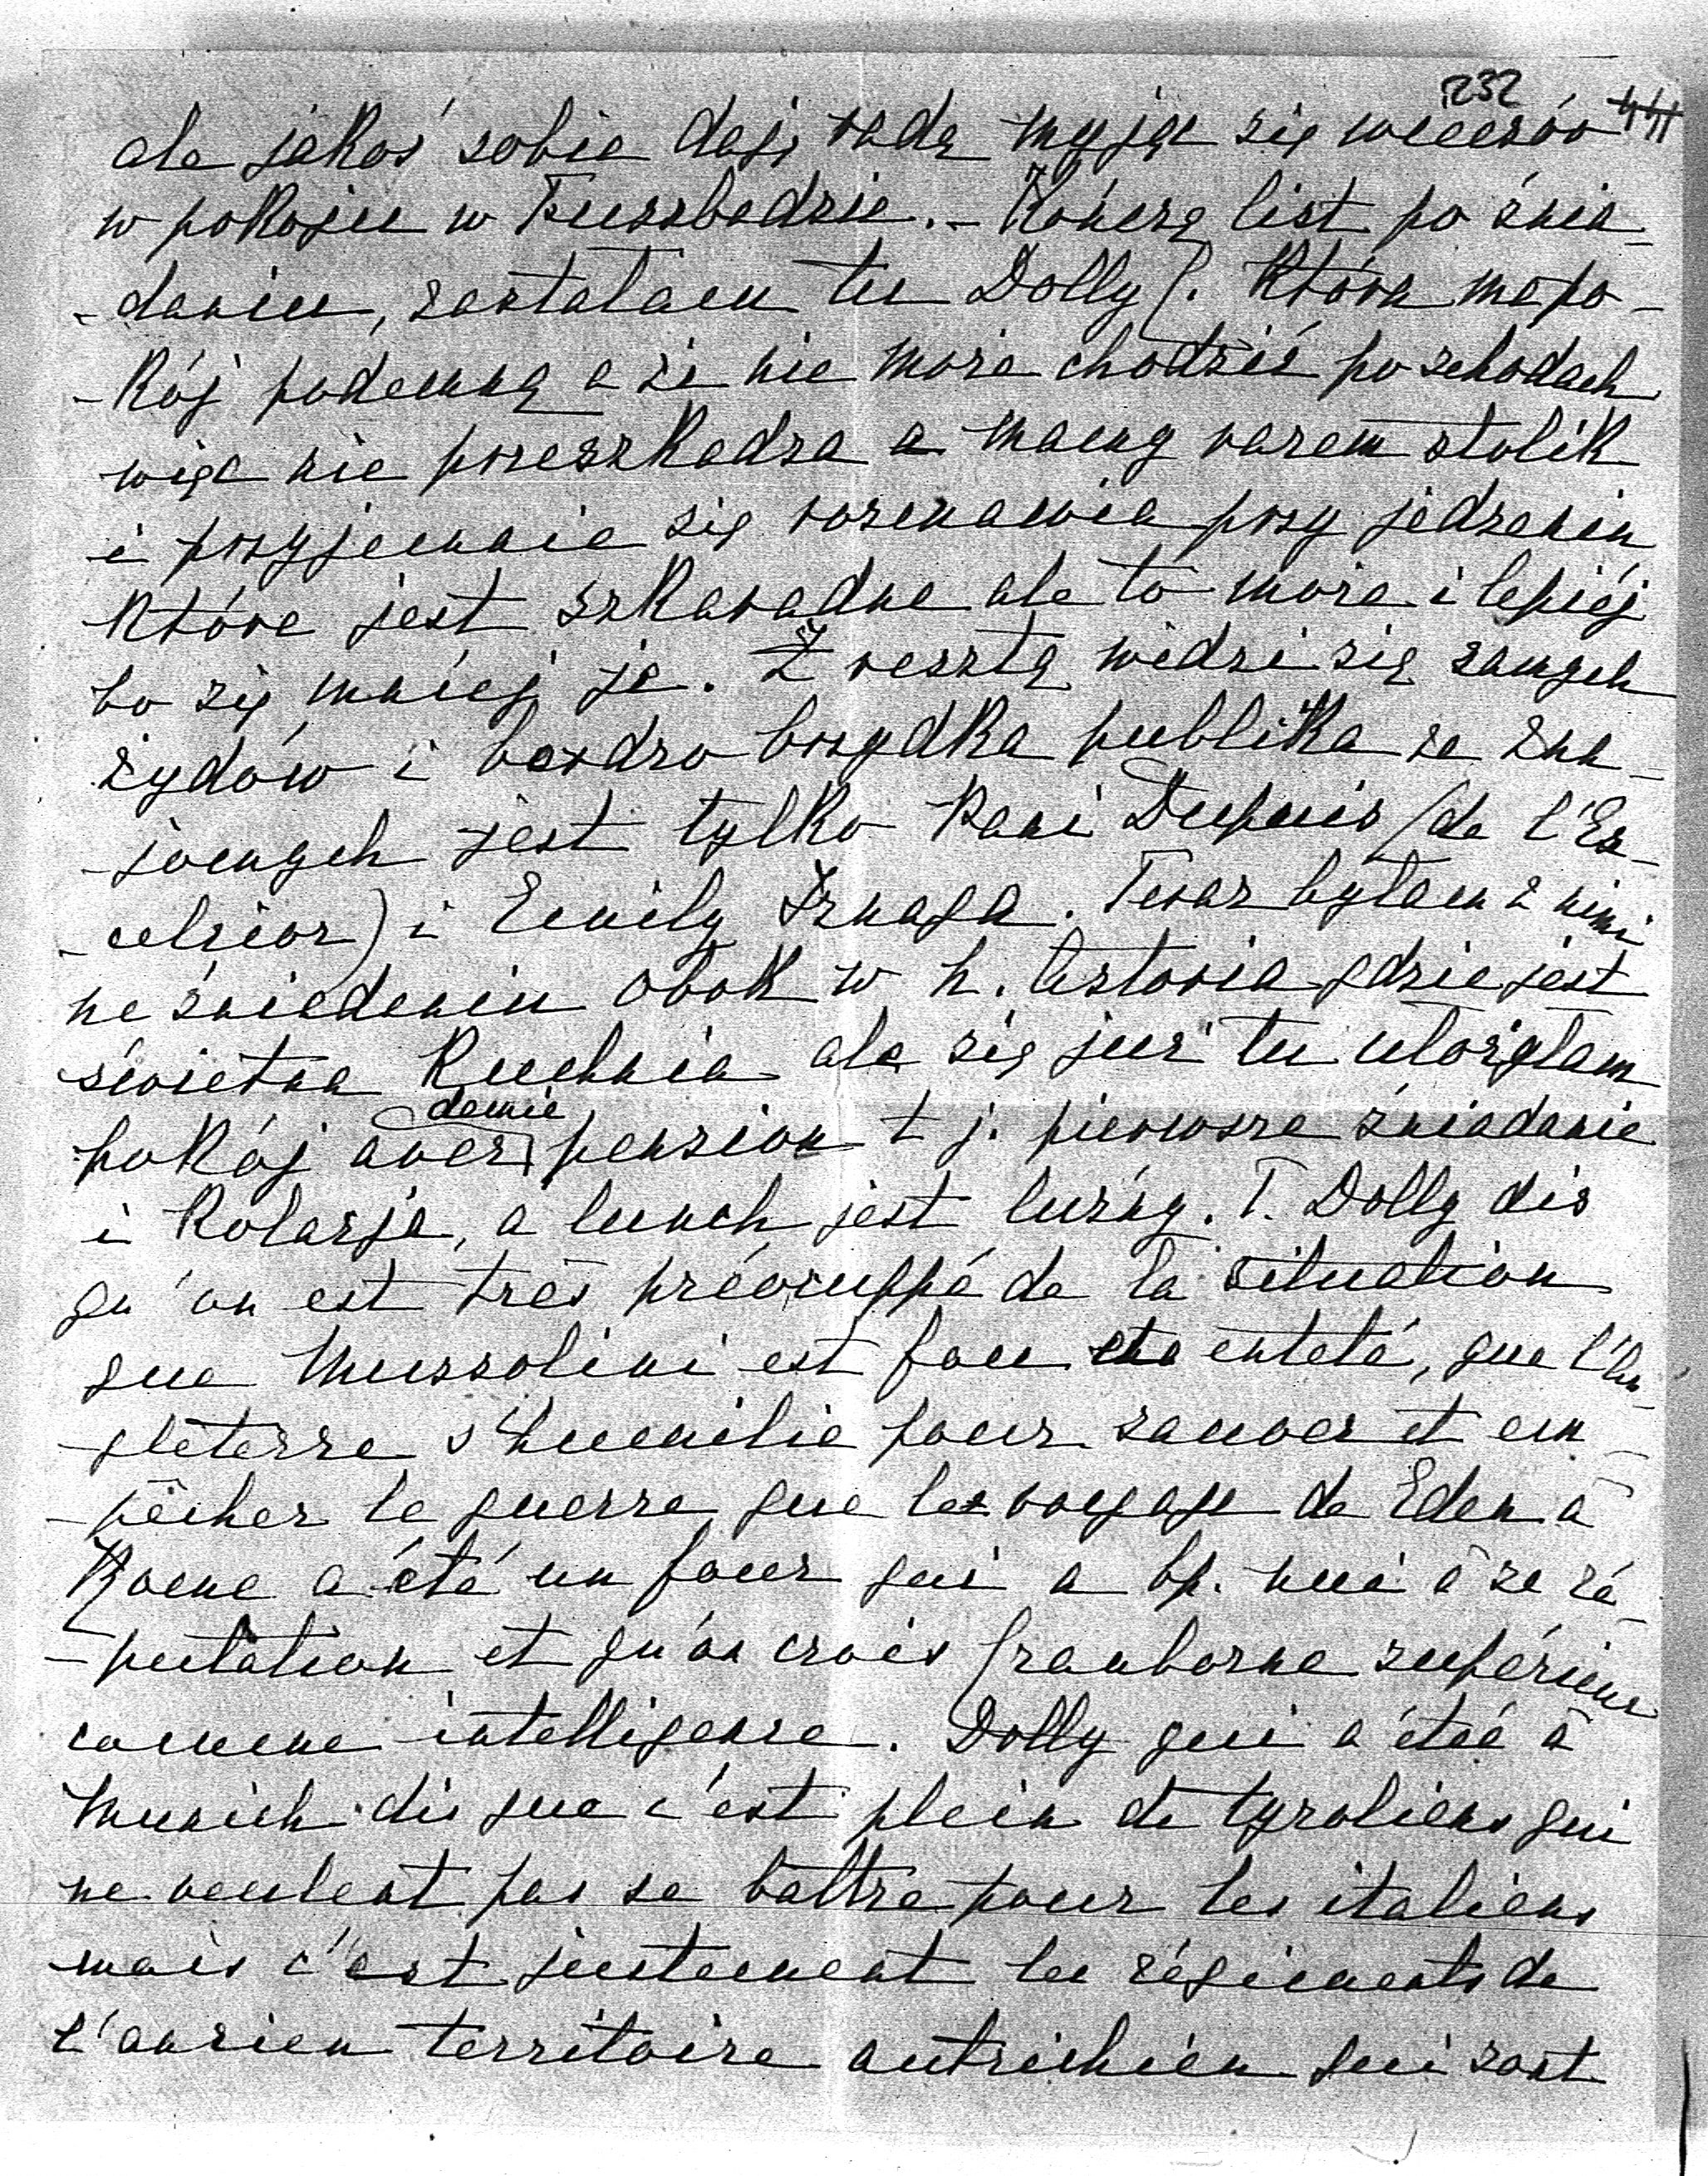 232 441
ale jakoś sobie daję radę myjąc się wieczór
w pokoju w Fussbadzie. – Kończę list po śnia-
-daniu, zastałam tu Dolly R. która ma po-
-kój podemną a że nie może chodzić po schodach
więc nie przeszkadza a mamy razem stolik
i przyjemnie się rozmawia przy jedzeniu
które jest szkaradne ale to może i lepiéj
bo się mniéj je. Zresztą widzi się samych
żydów i bardzo brzydka publika ze zna-
-jomych jest tylko Pani Dupuis (de l'Ex-
-celsior) i Emily Yznaga. Teraz byłam z nimi
na śniadaniu obok w h. Astoria gdzie jest
świetna kuchnia ale się już tu ułożyłam
pokój avec demie pension t j. pierwsze śniadanie
i kolacja, a lunch jest luźny. T. Dolly dis
qu'on est très préocuppé de la situation
que Mussolini est fou et entêté, que l'An-
-gleterre s'humilie pour sauver et em-
-pêcher la guerre que le voyage de Eden à
Rome a été un four qui a bp. nui à sa ré-
-putation et qu'on crois Cranborne supérieur
comme intelligence. Dolly qui a étée à
Munich dis que c'est plein de tyroliens qui
ne veulent pas se battre pour les italiens
mais c'est justement les régiments de
l'ancien territoire autrichien qui sont